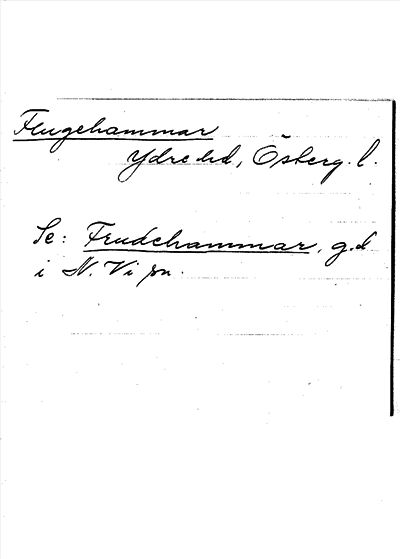 Flugehammar
Ydre hd, Österg. l.
Se: Frudehammar, g.d.
i N. Vi sn.